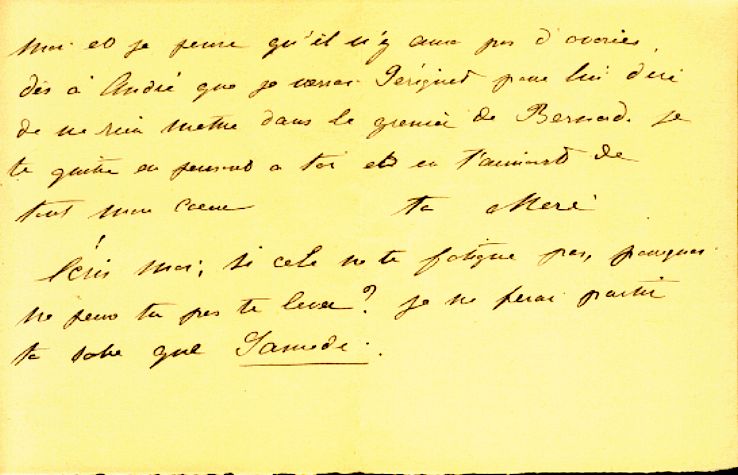 moi et je pense qu'il n'y aura pas d'avaries,
dis à André que je verrai Pérignet pour lui dire
de ne rien mettre dans le grenier de Bernard. Je
te quitte en pensant a toi et en t'aimant de
tout mon coeur ta Mère
Écris moi, si cela ne te fatigue pas, pourquoi
ne peux tu pas te lever? je ne ferai partir
ta robe que Samedi.